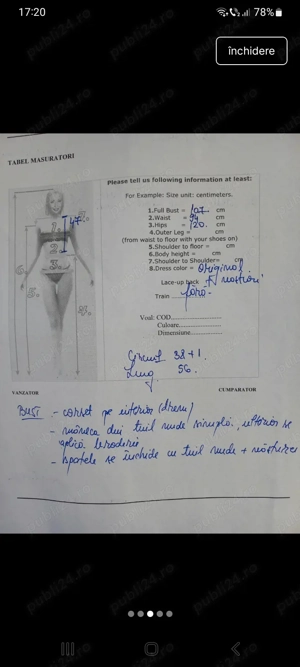 17:20
78%
închidere
TABEL MASURATORI
Please tell us following information at least:
For Example: Size unit: centimeters.
1.Full Bust = 107 cm
2.Waist = 94 cm
3.Hips = 120 cm
4.Outer Leg = cm
(from waist to floor with your shoes on)
5.Shoulder to floor = cm
6.Body height = cm
7.Shoulder to Shoulder= cm
8.Dress color = original
Lace-up back
Train fără
Voal: COD
Culoare
Dimensiune
38+1
Lung 56.
VANZATOR CUMPARATOR
- corset pe interior (dresu)
- mâneca din tuil nude simplă, ulterior se
aplică broderie
- spatele se închide cu tuil nude +
publi24.ro